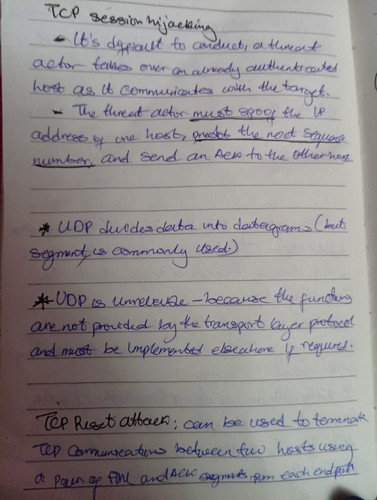 TCP session hijacking
- It's difficult to conduct, a threat
actor takes over an already authenticated
host as it communicates with the target.
- The threat actor must spoof the IP
address of one host, predict the next sequence
number, and send an ACK to the other host
* UDP divides data into datagrams (but
segment, is commonly used.)
* UDP is - because the functions
are not provided by the transport layer protocol
and must be implemented elsewhere if required.
TCP Reset attack: can be used to terminate
TCP communications between two hosts using
a pair of FIN and ACK segments from each endpoint